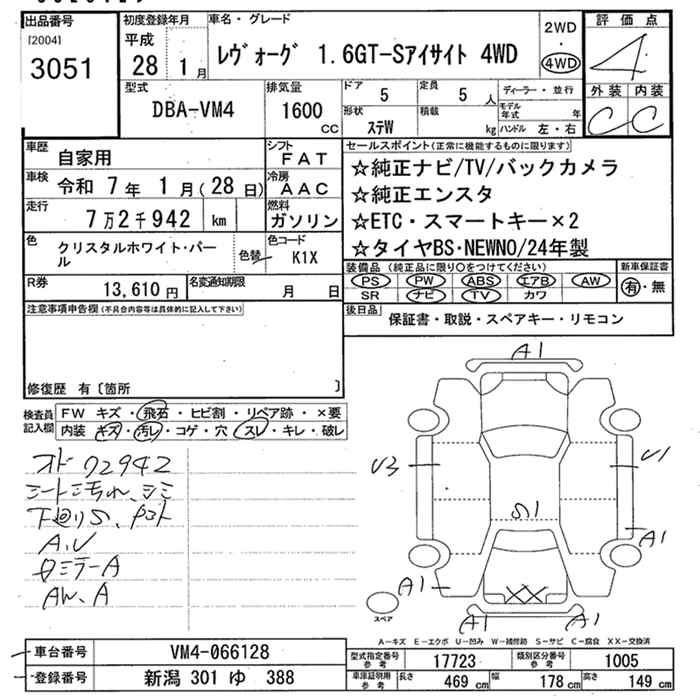 出品番号
[2004]
3051
初度登録年月
平成
28 1月
車名・グレード
レヴォーグ 1.6GT-Sアイサイト 4WD
2WD
・
4WD
評価点
4
外装 内装
C C
型式
DBA-VM4
排気量
1600
cc
ドア
5
定員
5 人
形状
ステW
積載
kg
ディーラー・並行
モデル年式 年
ハンドル 左・右
車歴
自家用
シフト
FAT
車検
令和 7年 1月(28日)
冷房
AAC
走行
7万2千942 km
燃料
ガソリン
色
クリスタルホワイト・パール
色替
色コード
K1X
R券
13,610円
名変通知期限
月 日
セールスポイント(正常に機能するものに限ります)
☆純正ナビ/TV/バックカメラ
☆純正エンスタ
☆ETC・スマートキー×2
☆タイヤBS・NEWNO/24年製
装備品(純正品に限り○をつけてください)
PS PW ABS エアB AW
SR ナビ TV カワ
新車保証書
有・無
後日品
保証書・取説・スペアキー・リモコン
注意事項申告欄(不具合内容等は具体的に記入して下さい)
修復歴 有〔箇所 〕
検査員記入欄
FW キズ・飛石・ヒビ割・リペア跡・×要
内装 キズ・汚レ・コゲ・穴・スレ・キレ・破レ
オド 72942
シート汚れ、シミ
下廻りS、
A,U
ミラーA
AW、A
A1
U3
U1
S1
A1
A1
XX
A1
A1
スペア
A-キズ E-エクボ U-凹み W-補修跡 S-サビ C-腐食 XX-交換済
車台番号
VM4-066128
登録番号
新潟 301 ゆ 388
型式指定番号
参考
17723
類別区分番号
参考
1005
車庫証明用
参考
長さ
469 cm
幅
178 cm
高さ
149 cm